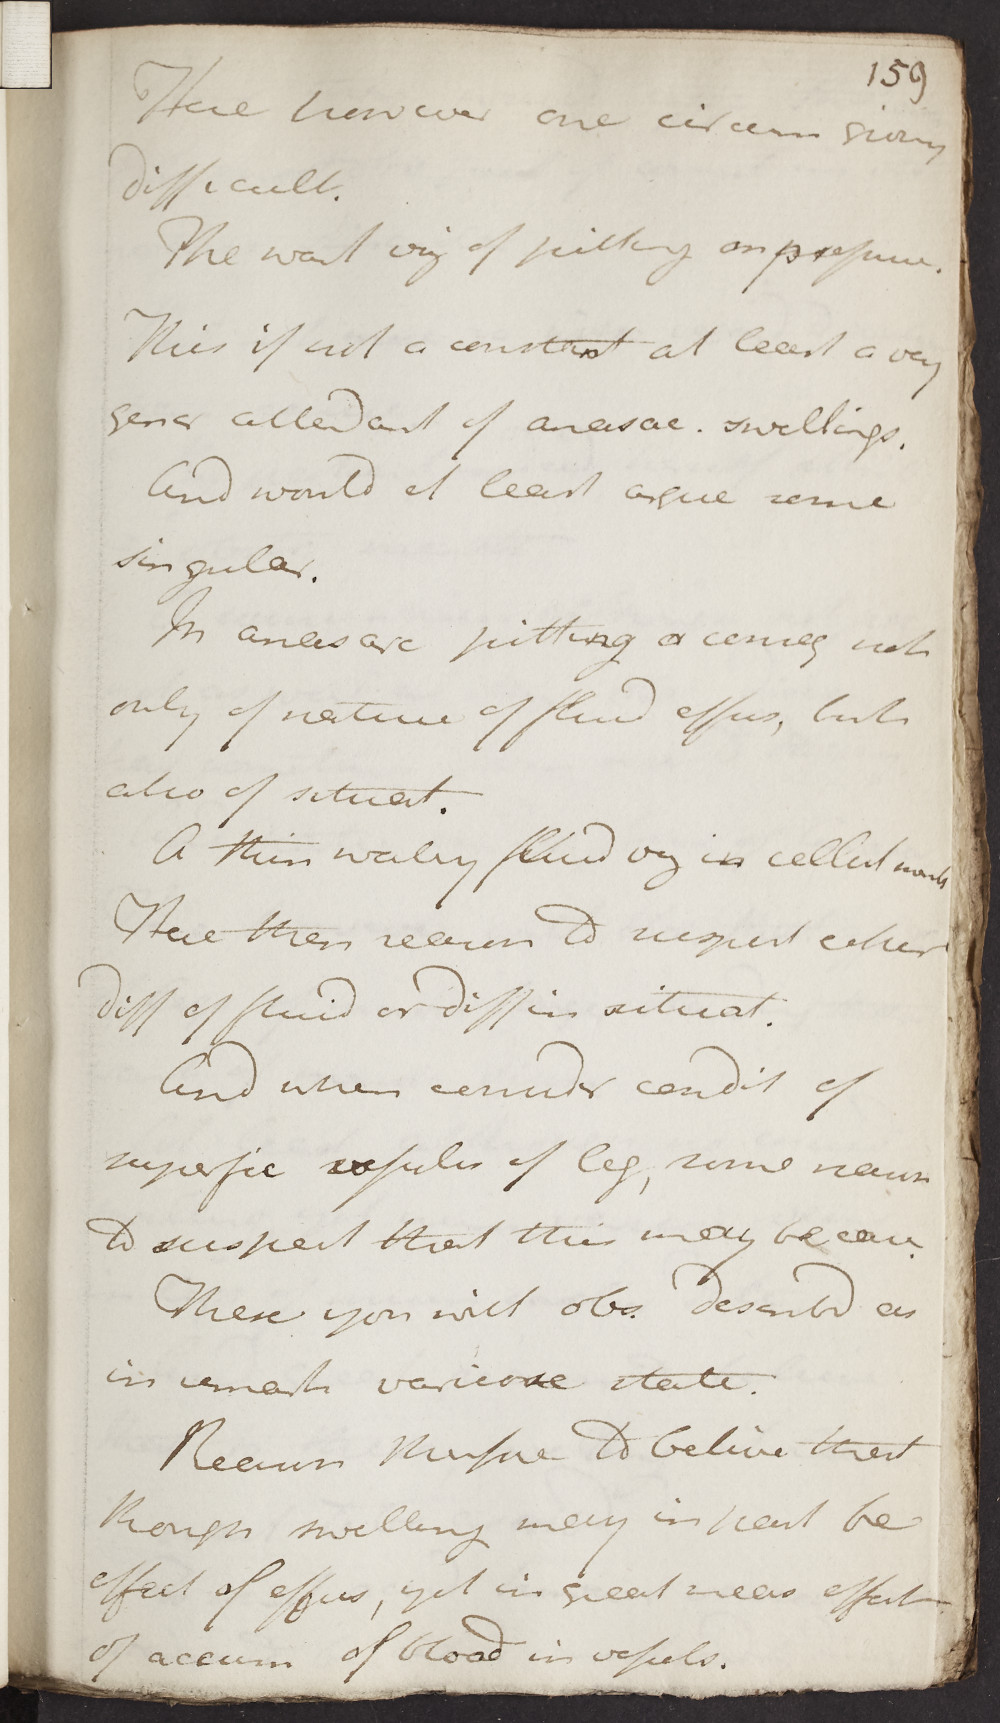 159
Here however one circum giving
difficult.
The want viz of pitting on pressure.
This if not a constant at least a very
gener attendant of anasac. swellings.
And would at least argue some
singular.
In anasarc pitting a conseq not
only of nature of fluid effus, but
also of situat.
A thin watery fluid viz in cellul
Here then reason to suspect either
diff of fluid or diff in situat.
And when consider condit of
superfic vessels of leg, some reason
to suspect that this may be cau.
These you will obs. describd as
in remark varicose state.
Reason therefore to believe that
though swelling may in part be
effect of effus, yet in great meas effect
of accum of blood in vessels.